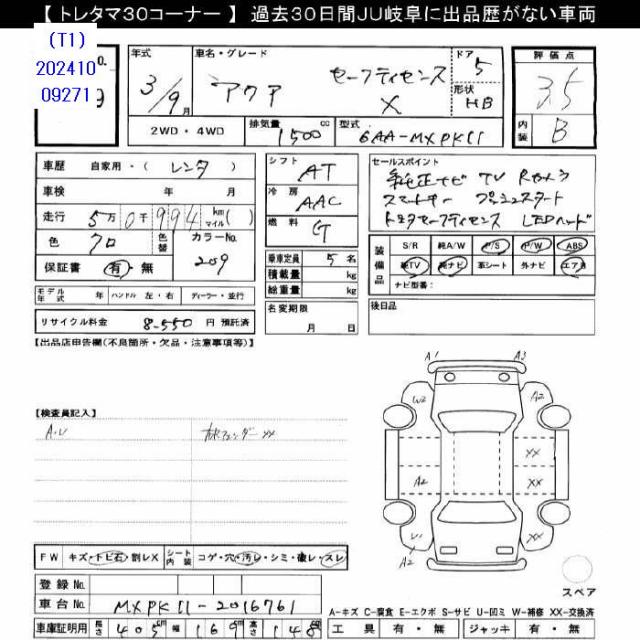 【 トレタマ30コーナー 】 過去30日間JU岐阜に出品歴がない車両
(T1)
202410
09271
O.
年式
3/9月
車名・グレード
アクア
セーフティセンス
X
ドア
5
形状
HB
評価点
3.5
内装
B
2WD ・ 4WD
排気量
1500 cc
型式
6AA-MXPK11
車歴 自家用・( レンタ )
車検 年 月
走行 5万 0千 994 km マイル ( )
色 クロ
色替
カラーNo.
209
保証書 有・無
シフト AT
冷房 AAC
燃料 G
乗車定員 5 名
積載量 kg
総重量 kg
セールスポイント
純正ナビ TV Rカメラ
スマートキー プッシュスタート
トヨタセーフティセンス LEDヘッド
装備品
S/R 純A/W P/S P/W ABS
純TV 純ナビ 革シート 外ナビ エアB
ナビ型番:
モデル年式 年 ハンドル 左・右 ディーラー・並行
名変期限
月 日
後日品
リサイクル料金 8,550 円 預託済
【出品店申告欄(不良箇所・欠品・注意事項等)】
【検査員記入】
A.U
フェンダーXX
A1
A3
W2
A2
XX
A2
XX
U1
XX
A2
スペア
FW キズ・トビ石・割レX シート内装 コゲ・穴・汚レ・シミ・破レ・スレ
登録 No.
車台 No. MXPK11-2016761
車庫証明用 長さ 405cm 幅 169 高さ 148
A-キズ C-腐食 E-エクボ S-サビ U-凹ミ W-補修 XX-交換済
工具 有・無 ジャッキ 有・無